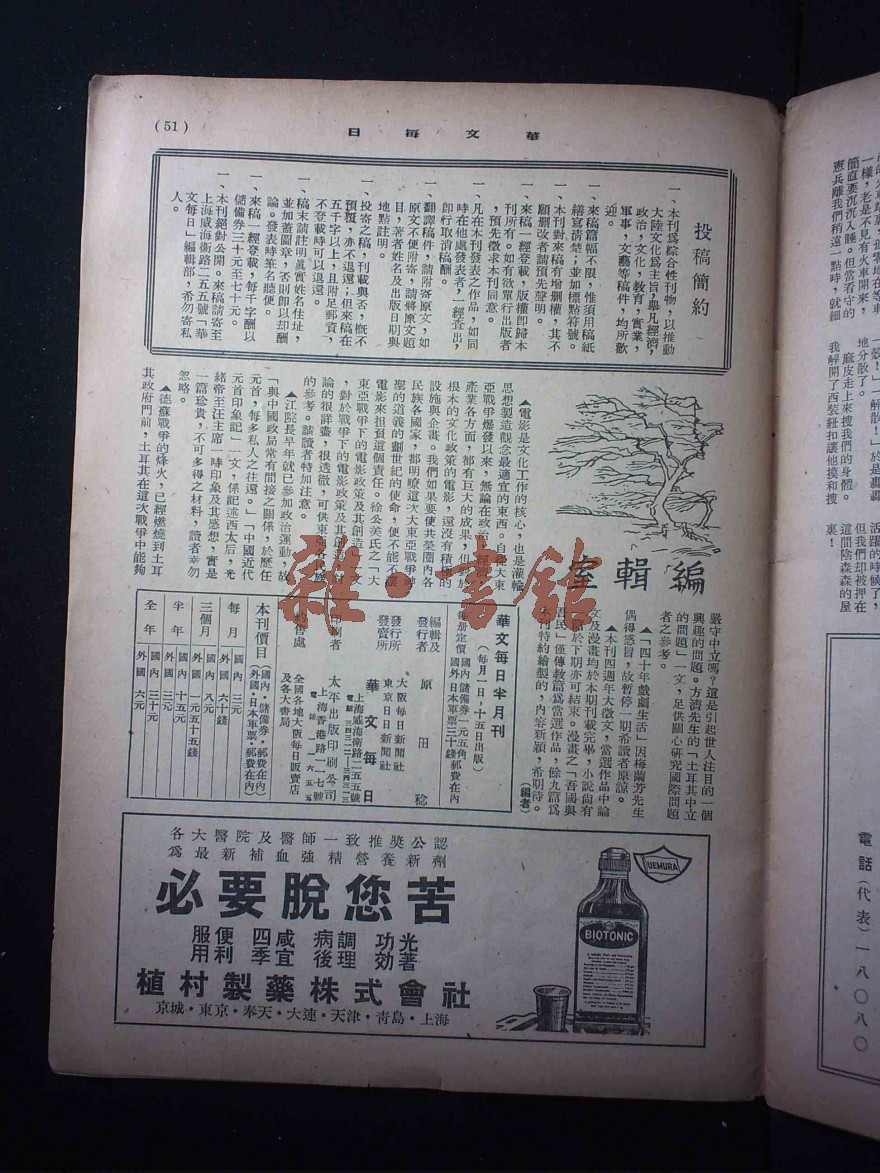 (51)
華文每日
投稿簡約
一、本刊爲綜合性刊物，以推動
大陸文化爲主旨，舉凡經濟，
政治，文化，教育，實業，
軍事，文藝等稿件，均所歡
迎。
一、來稿篇幅不限，惟須用稿紙
繕寫清楚；並加標點符號。
一、本刊對來稿有增删權，其不
願删改者請預先聲明。
一、來稿一經登載，版權即歸本
刊所有。如有欲單行出版者
，預先徵求本刊同意。
一、凡在本刊發表之作品，如同
時在他處發表者，一經查出，
即行取消稿酬。
一、翻譯稿件，請附寄原文，如
原文不便附寄，請將原文題
目，著者姓名及出版日期與
地點註明。
一、投寄之稿，刊載與否，槪不
預覆，亦不退還；但來稿在
五千字以上，且附足郵資，
不登載時可以退還。
一、稿末請註明眞實姓名住址，
並加蓋圖章，否則即以却酬
論。發表時筆名聽便。
一、來稿一經登載，每千字酬以
儲備券三十元至七十元。
一、本刊絕對公開。來稿請寄至
上海威海衞路二五五號「華
文每日」編輯部，希勿寄私
人。
編輯室
▲電影是文化工作的核心，也是灌輸
思想製造觀念最適宜的東西。自從大東
亞戰爭爆發以來，無論在政治
產業各方面，都有巨大的成果，但
根本的文化政策的電影，還沒有積極的
設施與企畫。我們如果要使共榮圈內各
民族各國家，都明暸這次大東亞戰爭神
聖的道義的創世紀的使命，便不能不讓
電影來担負這個責任。徐公美氏之「大
東亞戰爭下的電影政策及其創造」一文
，對於戰爭下的電影政策及其
論的很詳盡，很透徹，可供東亞各民族
的參考。請讀者特加注意。
▲江院長早年就已參加政治運動，故
「與中國政局常有間接之關係，於歷任
元首，每多私人之往還。」「中國近代
元首印象記」一文，係記述西太后，光
緒帝至汪主席一時印象及其感想，實是
一篇珍貴，不可多得之材料，讀者幸勿
忽略。
▲德蘇戰爭的烽火，已經燃燒到土耳
其政府門前，土耳其在這次戰爭中能夠
嚴守中立嗎？這是引起世人注目的一個
興趣的問題。方濟先生的「土耳其中立
的問題」一文，足供關心研究國際問題
者之參考。
▲「四十年戲劇生活」因梅蘭芳先生
偶得感冒，故暫停一期希讀者原諒。
▲本刊四週年大徵文，當選作品中論
文及漫畫均於本期刊載完畢，小說尙有
於下期亦可結束。漫畫之「吾國與
吾民」僅傳教篇爲當選作品，餘九篇爲
本刊特約繪製的，內容新穎，希期待。
（編者）
華文每日半月刊
（每月一日，十五日出版）
每册定價 國內儲備券一元五角 郵費在內
國外日本軍票三十錢
編輯及
發行者 原田稔
發行所 大阪每日新聞社
東京日日新聞社
發賣所 華文每日
上海威海衞路二五五號
印刷者 太平出版印刷公司
上海香港路一一七號
全國各地大阪每日販賣店
及各大書局
本刊價目（國內・儲備券・郵費在內
外國・日本軍票・郵費在內）
每月 國內 三元
外國 六十錢
三個月 國內 八元
外國 一元五十五錢
半年 國內 十五元
外國 三元
全年 國內 三十元
外國 六元
各大醫院及醫師一致推奬公認
爲最新補血強精營養新劑
必要脫您苦
服用便利 四季咸宜 病後調理 功效光著
植村製藥株式會社
京城・東京・奉天・大連・天津・靑島・上海
UEMURA
BIOTONIC
雜・書館
一樣，老是不見有火車開來，
簡直要沉沉入睡。但當看守的
憲兵離我們稍遠一點時，就細
一殼！」「解散！」於是轟轟
地分散了。
麻皮走上來搜我們的身體。
我解開了西裝紐扣讓他摸和搜
活躍的時候了，
但我們却被押在
這間陰森森的屋
裏！
電話（代表）一八〇八〇